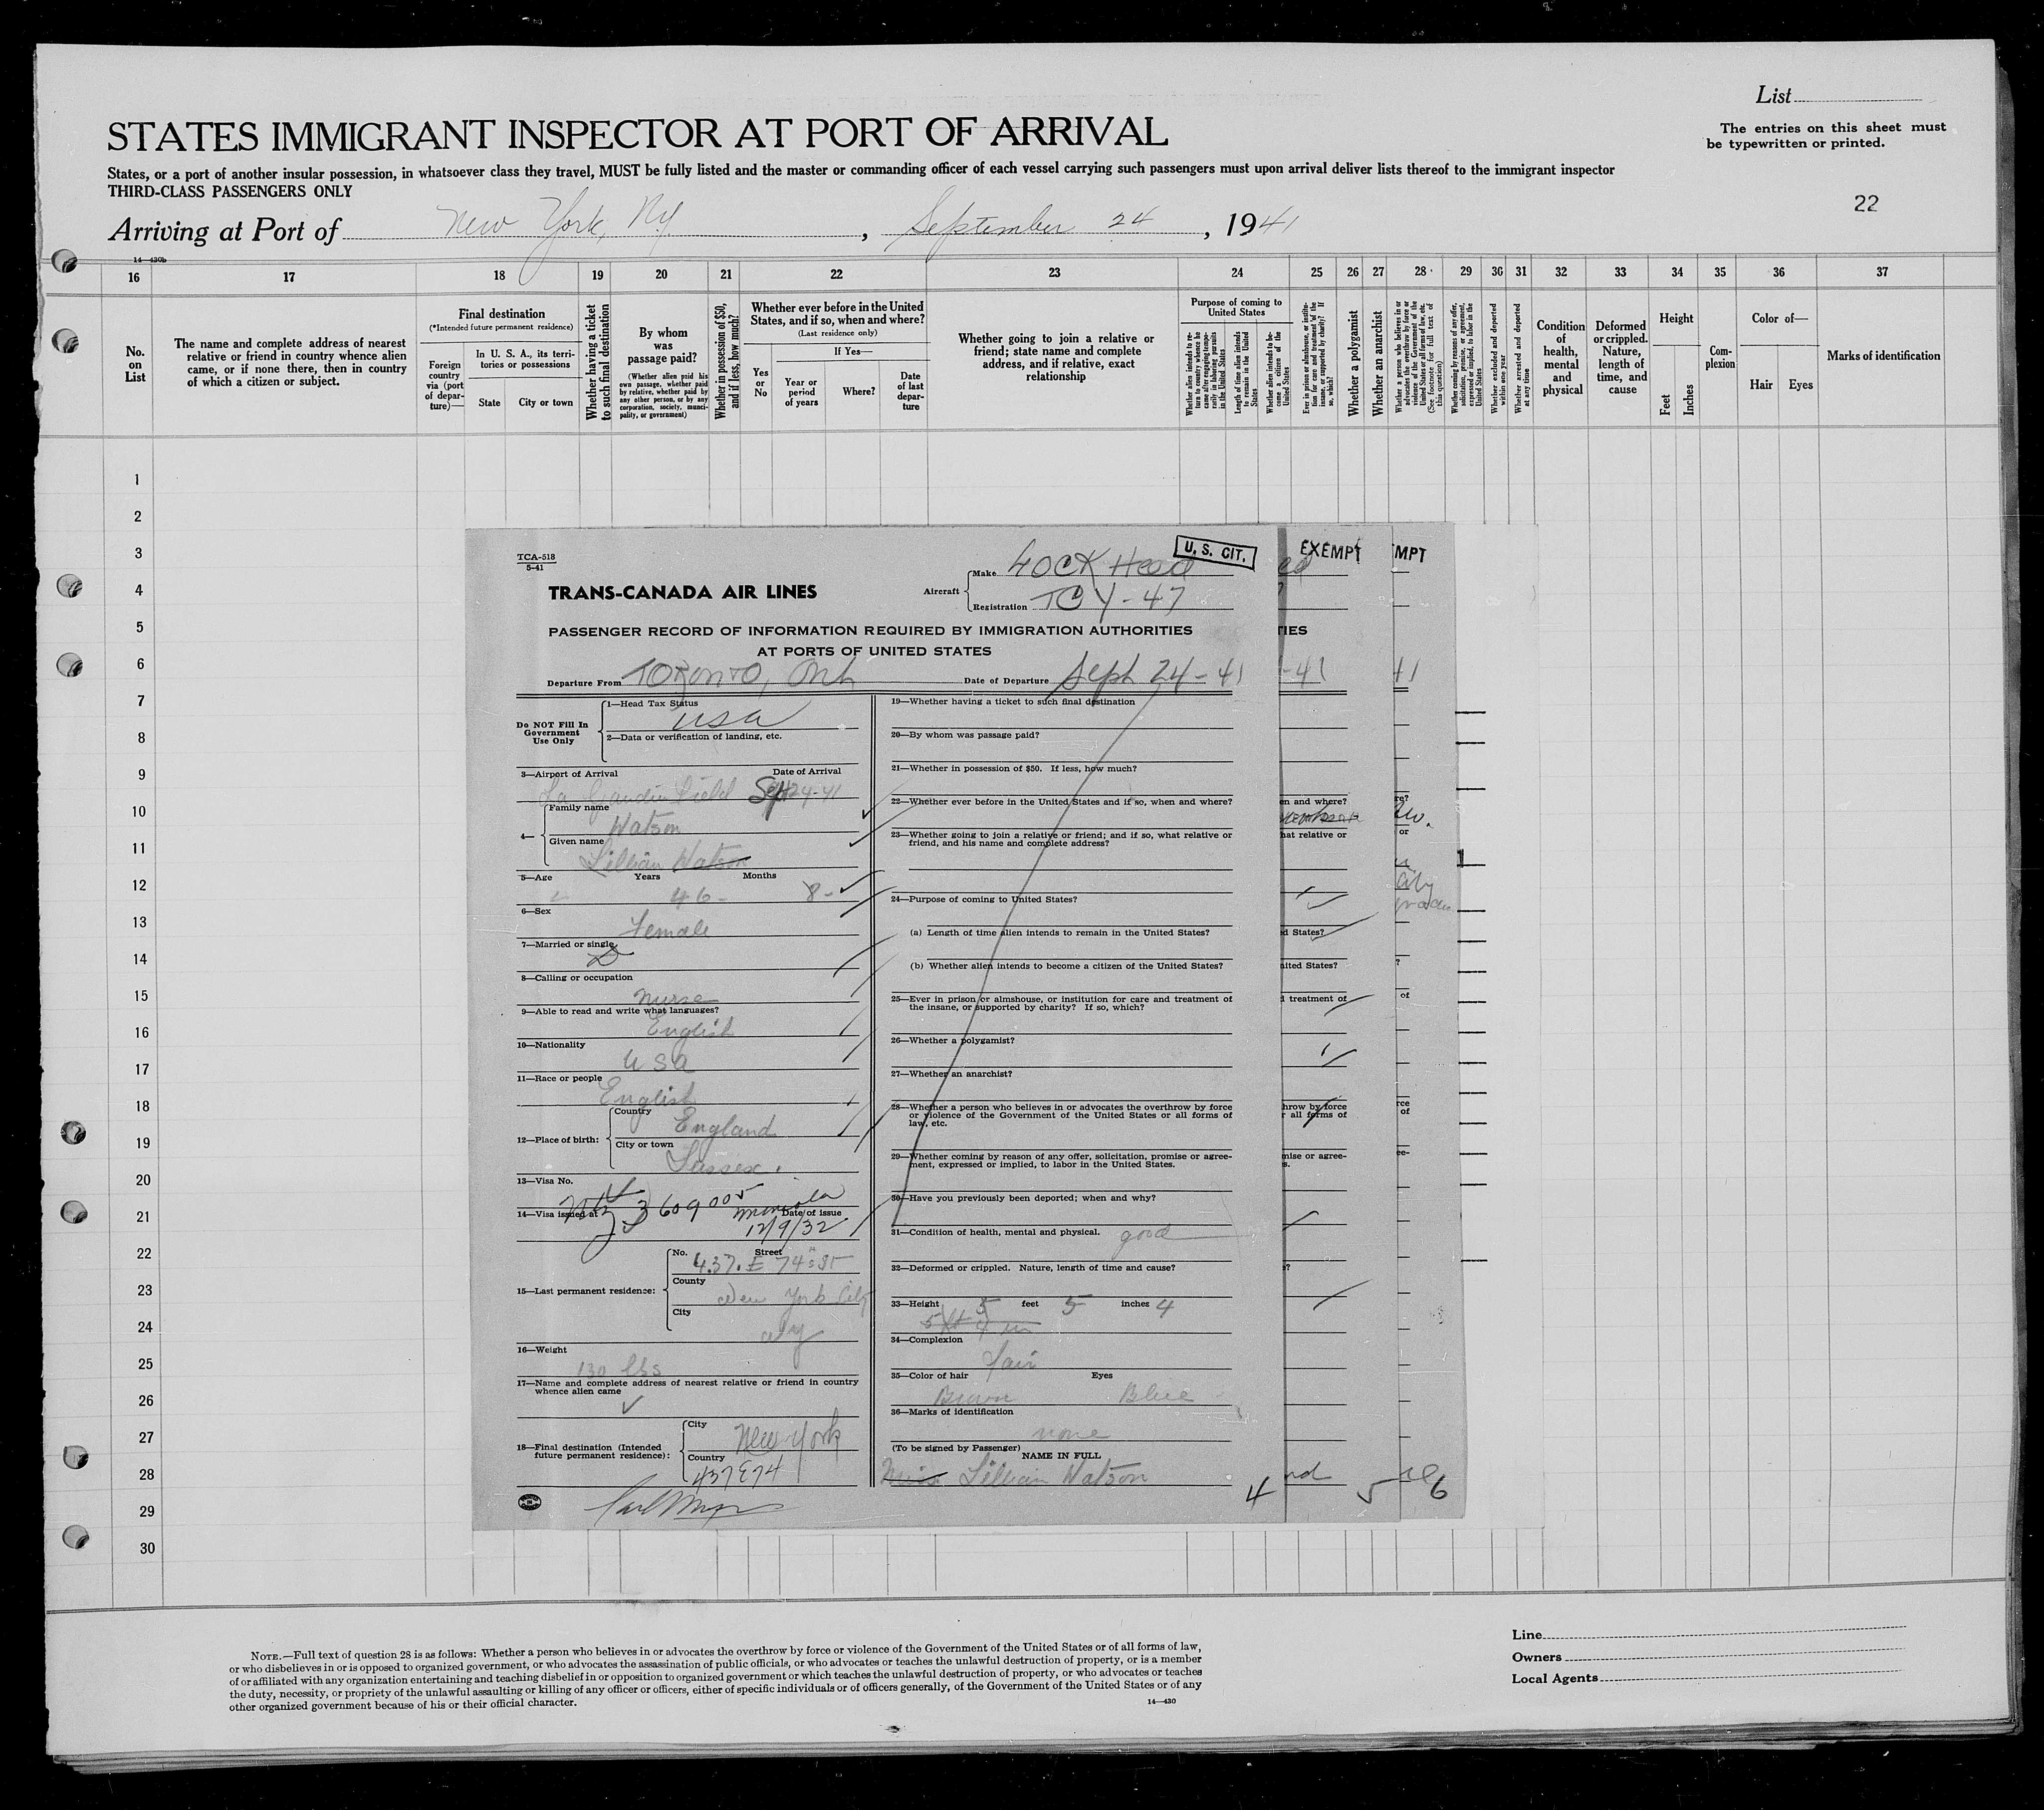 List
STATES IMMIGRANT INSPECTOR AT PORT OF ARRIVAL
The entries on this sheet must
be typewritten or printed.
States, or a port of another insular possession, in whatsoever class they travel, MUST be fully listed and the master or commanding officer of each vessel carrying such passengers must upon arrival deliver lists thereof to the immigrant inspector
THIRD-CLASS PASSENGERS ONLY
22
Arriving at Port of New York, N.Y. , September 24 , 1941
14—430b
16 17 18 19 20 21 22 23 24 25 26 27 28 29 30 31 32 33 34 35 36 37
No.
on
List
The name and complete address of nearest
relative or friend in country whence alien
came, or if none there, then in country
of which a citizen or subject.
Final destination
(*Intended future permanent residence)
Foreign
country
via (port
of depar-
ture)—
In U. S. A., its terri-
tories or possessions
State
City or town
Whether having a ticket
to such final destination
By whom
was
passage paid?
(Whether alien paid his
own passage, whether paid
by relative, whether paid by
any other person, or by any
corporation, society, munici-
pality, or government)
Whether in possession of $50,
and if less, how much?
Whether ever before in the United
States, and if so, when and where?
(Last residence only)
If Yes—
Yes
or
No
Year or
period
of years
Where?
Date
of last
depar-
ture
Whether going to join a relative or
friend; state name and complete
address, and if relative, exact
relationship
Purpose of coming to
United States
Whether alien intends to re-
turn to country whence he
came after engaging tempo-
rarily in laboring pursuits
in the United States
Length of time alien intends
to remain in the United
States
Whether alien intends to be-
come a citizen of the
United States
Ever in prison or almshouse, or institu-
tion for care and treatment of the
insane, or supported by charity? If
so, which?
Whether a polygamist
Whether an anarchist
Whether a person who believes in or
advocates the overthrow by force or
violence of the Government of the
United States or all forms of law, etc.
(See footnote for full text of
this question)
Whether coming by reason of any offer,
solicitation, promise, or agreement,
expressed or implied, to labor in the
United States
Whether excluded and deported
within one year
Whether arrested and deported
at any time
Condition
of
health,
mental
and
physical
Deformed
or crippled.
Nature,
length of
time, and
cause
Height
Feet
Inches
Com-
plexion
Color of—
Hair
Eyes
Marks of identification
1
2
3
4
5
6
7
8
9
10
11
12
13
14
15
16
17
18
19
20
21
22
23
24
25
26
27
28
29
30
TCA-518
5-41
TRANS-CANADA AIR LINES
Aircraft
Make LOCK Heed
Registration TC Y-47
U. S. CIT.
EXEMPT
MPT
PASSENGER RECORD OF INFORMATION REQUIRED BY IMMIGRATION AUTHORITIES
AT PORTS OF UNITED STATES
TIES
Departure From TORONTO, Ont
Date of Departure Sept 24-41
-41
41
Do NOT Fill In
Government
Use Only
1—Head Tax Status
USA
2—Data or verification of landing, etc.
3—Airport of Arrival Date of Arrival
La Guardia Field Sept 24-41
4—
Family name
Watson
Given name
Lillian Watson
5—Age Years Months
46- 8-
6—Sex
Female
7—Married or single
D
8—Calling or occupation
Nurse
9—Able to read and write what languages?
English
10—Nationality
USA
11—Race or people
English
12—Place of birth:
Country
England
City or town
Sussex.
13—Visa No.
3609005
14—Visa issued at Date of issue
Mineola
12/9/32
15—Last permanent residence:
No. Street
437. E 74 St
County
New York City
City
NY
16—Weight
130 lbs
17—Name and complete address of nearest relative or friend in country
whence alien came
18—Final destination (Intended
future permanent residence):
City
New York
Country
437 E 74
19—Whether having a ticket to such final destination
20—By whom was passage paid?
21—Whether in possession of $50. If less, how much?
22—Whether ever before in the United States and if so, when and where?
23—Whether going to join a relative or friend; and if so, what relative or
friend, and his name and complete address?
24—Purpose of coming to United States?
(a) Length of time alien intends to remain in the United States?
(b) Whether alien intends to become a citizen of the United States?
25—Ever in prison or almshouse, or institution for care and treatment of
the insane, or supported by charity? If so, which?
26—Whether a polygamist?
27—Whether an anarchist?
28—Whether a person who believes in or advocates the overthrow by force
or violence of the Government of the United States or all forms of
law, etc.
29—Whether coming by reason of any offer, solicitation, promise or agree-
ment, expressed or implied, to labor in the United States.
30—Have you previously been deported; when and why?
31—Condition of health, mental and physical. good
32—Deformed or crippled. Nature, length of time and cause?
33—Height 5 feet 5 inches 4
5 ft 4 in
34—Complexion
fair
35—Color of hair Eyes
Brown Blue
36—Marks of identification
none
(To be signed by Passenger)
NAME IN FULL
Miss Lillian Watson
4
en and where?
hat relative or
d States?
ited States?
treatment of
hrow by force
r all forms of
mise or agree-
s.
?
nd
5
re?
or
City
?
of
rce
of
ee-
6
NOTE.—Full text of question 28 is as follows: Whether a person who believes in or advocates the overthrow by force or violence of the Government of the United States or of all forms of law,
or who disbelieves in or is opposed to organized government, or who advocates the assassination of public officials, or who advocates or teaches the unlawful destruction of property, or is a member
of or affiliated with any organization entertaining and teaching disbelief in or opposition to organized government or which teaches the unlawful destruction of property, or who advocates or teaches
the duty, necessity, or propriety of the unlawful assaulting or killing of any officer or officers, either of specific individuals or of officers generally, of the Government of the United States or of any
other organized government because of his or their official character.
14—430
Line
Owners
Local Agents